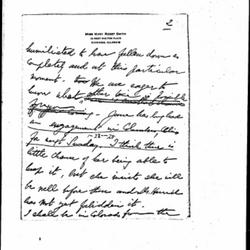 2
MISS MARY ROZET SMITH
12 WEST WALTON PLACE
CHICAGO, ILLINOIS
humiliated to have fallen down so
completely and at this particular
moment. We are eager to
know what
Jane has had
an engagement in
for next Sunday. I think there is
little chance of her being able to
keep it, but she insists she will
be well before then and Dr. Herrick
has not yet forbidden it.
I shall be in Colorado for the